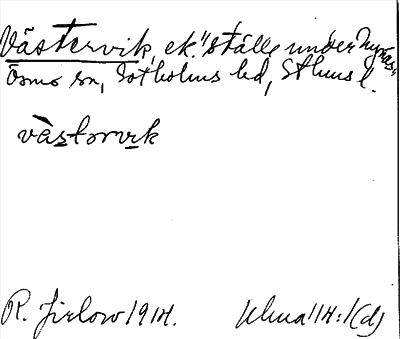 Västervik, ek. "ställe under Nynäs"
Ösmo sn, Sotholms hd, Sthms l.
västorvik
R. Jirlow 1914.
Ulma 114:1(d)